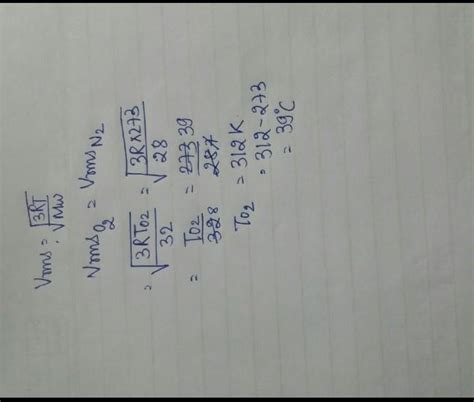 Vrms = √3RT/Mw
VrmsO2 = VrmsN2
= √3RTO2/32 = √3R×273/28
= TO2/328 = 273 39/287
TO2 = 312 K
= 312 - 273
= 39°C